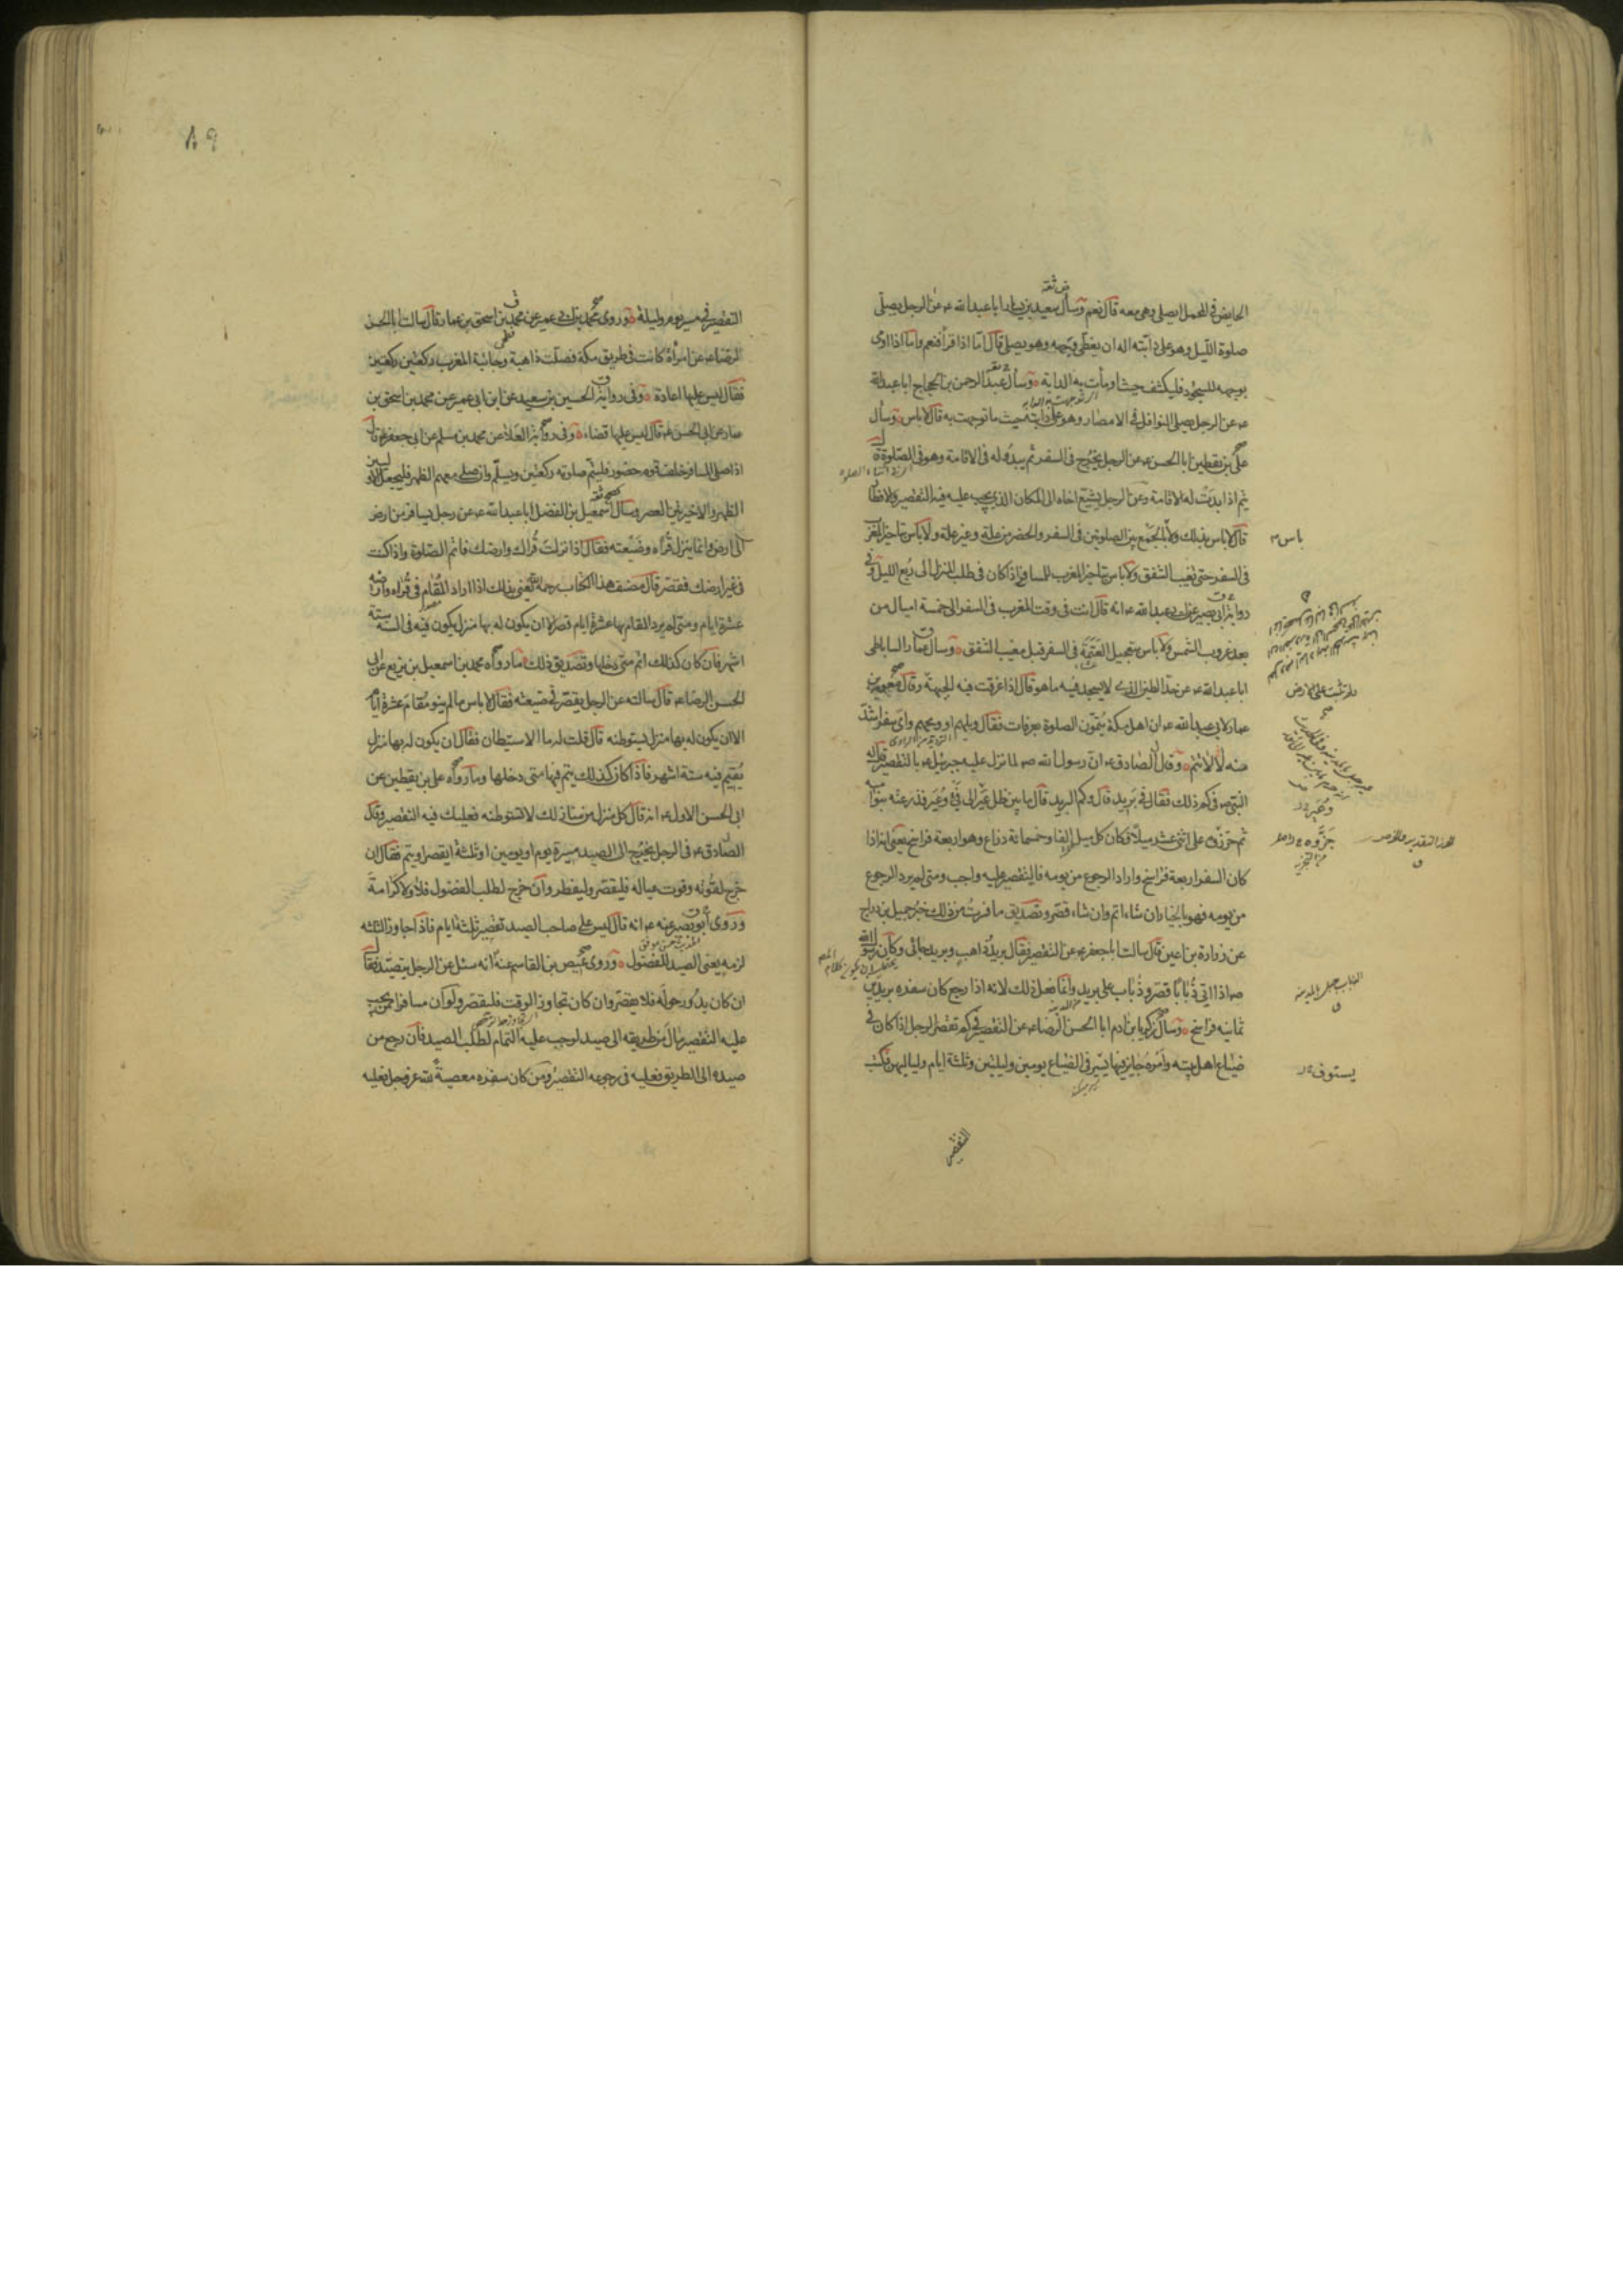 الحايض في المحمل ايصلي وهي معه قال نعم وسأل سعيد بن يسار ابا عبد الله ع عن الرجل يصلي
صلوة الليل وهو على دابته اله ان يغطي وجهه وهو يصلي قال اما اذا قرأ فنعم واما اذا اومى
بوجهه للسجود فليكشف حيث اومأت به الدابة وسأل عبد الرحمن بن الحجاج ابا عبد الله
ع عن الرجل يصلي النوافل في الامصار وهو على دابته حيث ما توجهت به قال لا باس وسأل
علي بن يقطين ابا الحسن ع عن الرجل يخرج في السفر ثم يبدو له في الاقامة وهو في الصلوة قال
يتم اذا بدت له الاقامة وعن الرجل يشيع اخاه الى المكان الذي يجب عليه فيه التقصير والافطار
قال لا باس بذلك ولا بالجمع بين الصلوتين في السفر والحضر من علة وغير علة ولا باس بتاخير المغرب
باس
في السفر حتى تغيب الشفق ولا باس بتاخير المغرب للمسافر اذا كان في طلب المنزل الى ربع الليل وفي
رواية ابي بصير عن ابي عبد الله ع انه قال انت في وقت المغرب في السفر الى خمسة اميال من
بعد غروب الشمس ولا باس بتعجيل العتمة في السفر قبل مغيب الشفق وسأل عمار الساباطي
ابا عبد الله ع عن حد الطين الذي لا يسجد فيه ما هو قال اذا غرقت فيه الجبهة وقال معوية بن
على الارض
عمار لابي عبد الله ع ان اهل مكة يتمون الصلوة بعرفات فقال ويلهم او ويحهم واي سفر اشد
منه لا لا تتم وقال الصادق ع ان رسول الله ص لما نزل عليه جبرئيل ع بالتقصير قال له
النبي ص في كم ذلك فقال في بريد قال وكم البريد قال ما بين ظل عير الى فيء وعير فذرعته بنو امية
ثم جزؤه على اثني عشر ميلا فكان كل ميل الفا وخمسمائة ذراع وهو اربعة فراسخ يعني انه اذا
كان السفر اربعة فراسخ واراد الرجوع من يومه فالتقصير عليه واجب ومتى لم يرد الرجوع
من يومه فهو بالخيار ان شاء اتم وان شاء قصر وتصديق ما فسرت من ذلك خبر جميل بن دراج
عن زرارة بن اعين قال سالت ابا جعفر ع عن التقصير فقال بريد ذاهب وبريد جائي وكان رسول الله
ص اذا اتى ذبابا قصر وذباب على بريد وانما فعل ذلك لانه اذا رجع كان سفره بريدين
ثمانية فراسخ وسأل زكريا بن ادم ابا الحسن الرضا ع عن التقصير في كم تقصر الرجل اذا كان في
ضياع اهل بيته وامره جايز فيها يسير في الضياع يومين وليلتين وثلثة ايام ولياليهن فكتب
التقصير
٨٩
التقصير في مسير يوم وليلة وروى محمد بن ابي عمير عن محمد بن اسحق بن عمار قال سالت ابا الحسن
الرضا ع عن امرأة كانت في طريق مكة فصلت ذاهبة وجائية المغرب ركعتين ركعتين
فقال ليس عليها اعادة وفي رواية الحسين بن سعيد عن ابن ابي عمير عن محمد بن اسحق بن
عمار عن ابي الحسن ع قال ليس عليها قضاء وفي رواية العلا عن محمد بن مسلم عن ابي جعفر ع قال
اذا صلى المسافر خلف قوم حضور فليتم صلوته ركعتين ويسلم وان صلى معهم الظهر فليجعل الاوليين
الظهر والاخيرتين العصر وسأل اسمعيل بن الفضل ابا عبد الله ع عن رجل يسافر من ارض
الى ارض وانما ينزل قراه وضيعته فقال اذا نزلت قراك وارضك فاتم الصلوة واذا كنت
في غير ارضك فقصر قال مصنف هذا الكتاب رحمه الله يعني بذلك اذا اراد المقام في قراه وارضه
عشرة ايام ومتى لم يرد المقام بها عشرة ايام قصر الا ان يكون له بها منزل يكون فيه في السنة ستة
اشهر فان كان كذلك اتم متى دخلها وتصديق ذلك ما رواه محمد بن اسمعيل بن بزيع عن ابي
الحسن الرضا ع قال سالته عن الرجل يقصر في ضيعته فقال لا باس ما لم ينو مقام عشرة ايام
الا ان يكون له بها منزل يستوطنه قال قلت له ما الاستيطان فقال ان يكون له بها منزل
يقيم فيه ستة اشهر فاذا كان كذلك يتم فيها متى دخلها وما رواه علي بن يقطين عن
ابي الحسن الاول ع انه قال كل منزل من منازلك لا تستوطنه فعليك فيه التقصير وقال
الصادق ع في الرجل يخرج الى الصيد مسيرة يوم او يومين او ثلثة ايقصر او يتم فقال ان
خرج لقوته وقوت عياله فليقصر وليفطر وان خرج لطلب الفضول فلا ولا كرامة
وروى ابو بصير عنه ع انه قال ليس على صاحب الصيد تقصير ثلثة ايام فاذا جاوز الثلثة
لزمه يعني الصيد للفضول وروى عيص بن القاسم عنه انه سئل عن الرجل يتصيد فقال
ان كان يدور حوله فلا يقصر وان كان تجاوز الوقت فليقصر ولو ان مسافرا ممن يجب
عليه التقصير مال من طريقه الى صيد لوجب عليه التمام لطلب الصيد فان رجع من
صيده الى الطريق فعليه في رجوعه التقصير ومن كان سفره معصية لله عز وجل فعليه